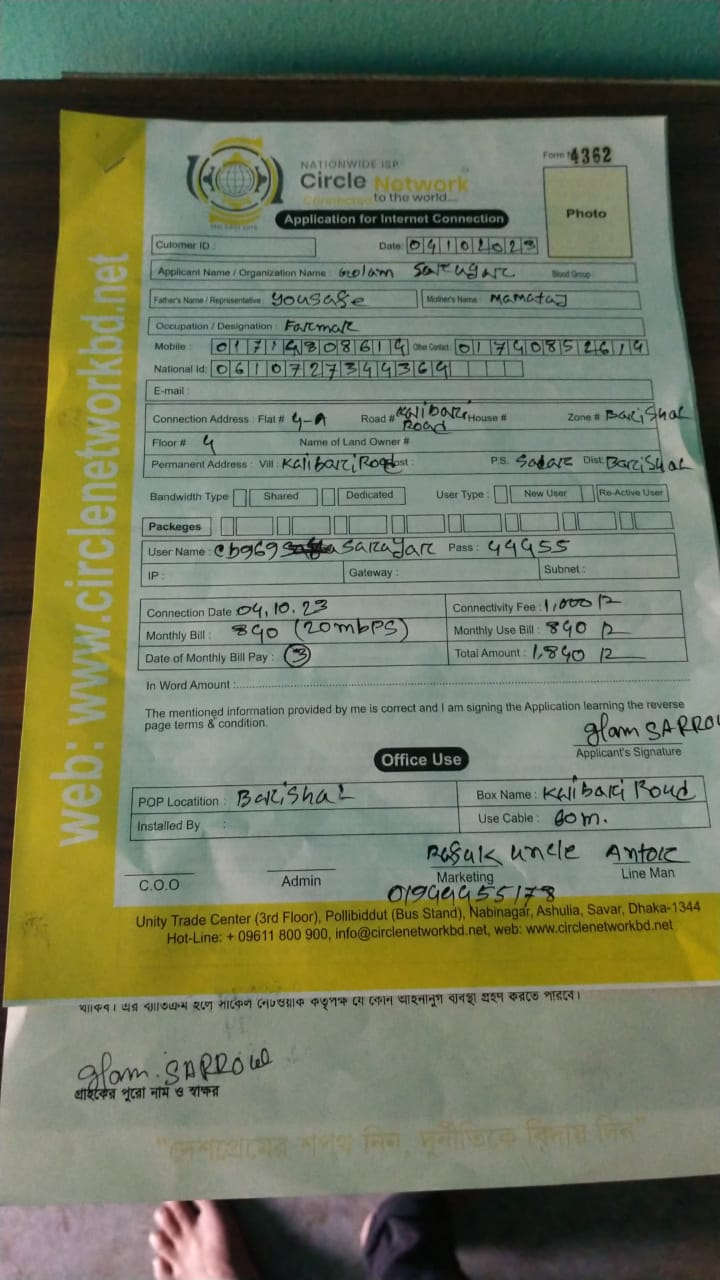 Form # 4362
NATIONWIDE ISP
Circle Network
Connected to the world....
Application for Internet Connection
Photo
Cutomer ID : Date: 04102023
Applicant Name / Organization Name : Golam Blood Group :
Father's Name / Representative : Yousafe Mother's Name : Mamataj
Occupation / Designation : Farmar
Mobile : 01714808614 Other Contact : 01740852614
National Id: 0610727344364
E-mail :
Connection Address : Flat # 4-A Road # Kalibari Road House # Zone # Barishal
Floor # 4 Name of Land Owner #
Permanent Address : Vill : Kalibari Road Post : P.S. Sadar Dist. Barishal
Bandwidth Type Shared Dedicated User Type : New User Re-Active User
Packeges
User Name : cb969 Pass : 44455
IP : Gateway : Subnet :
Connection Date : 04.10.23 Connectivity Fee : 1,000
Monthly Bill : 840 (20mbps) Monthly Use Bill : 840
Date of Monthly Bill Pay : 3 Total Amount : 1,840
In Word Amount :
The mentioned information provided by me is correct and I am signing the Application learning the reverse
page terms & condition.
glam SARROW
Applicant's Signature
Office Use
POP Locatition : Barishal Box Name : Kalibari Road
Installed By : Use Cable : 60m.
uncle Antor
C.O.O Admin Marketing Line Man
01944455178
Unity Trade Center (3rd Floor), Pollibiddut (Bus Stand), Nabinagar, Ashulia, Savar, Dhaka-1344
Hot-Line: + 09611 800 900, info@circlenetworkbd.net, web: www.circlenetworkbd.net
web: www.circlenetworkbd.net
থাকিব। এর ব্যতিক্রম হলে সার্কেল নেটওয়ার্ক কতৃপক্ষ যে কোন আইনানুগ ব্যবস্থা গ্রহণ করতে পারবে।
glam. SARROW
গ্রাহকের পুরো নাম ও স্বাক্ষর
"দেশপ্রেমের শপথ নিন, দুর্নীতিকে বিদায় দিন"